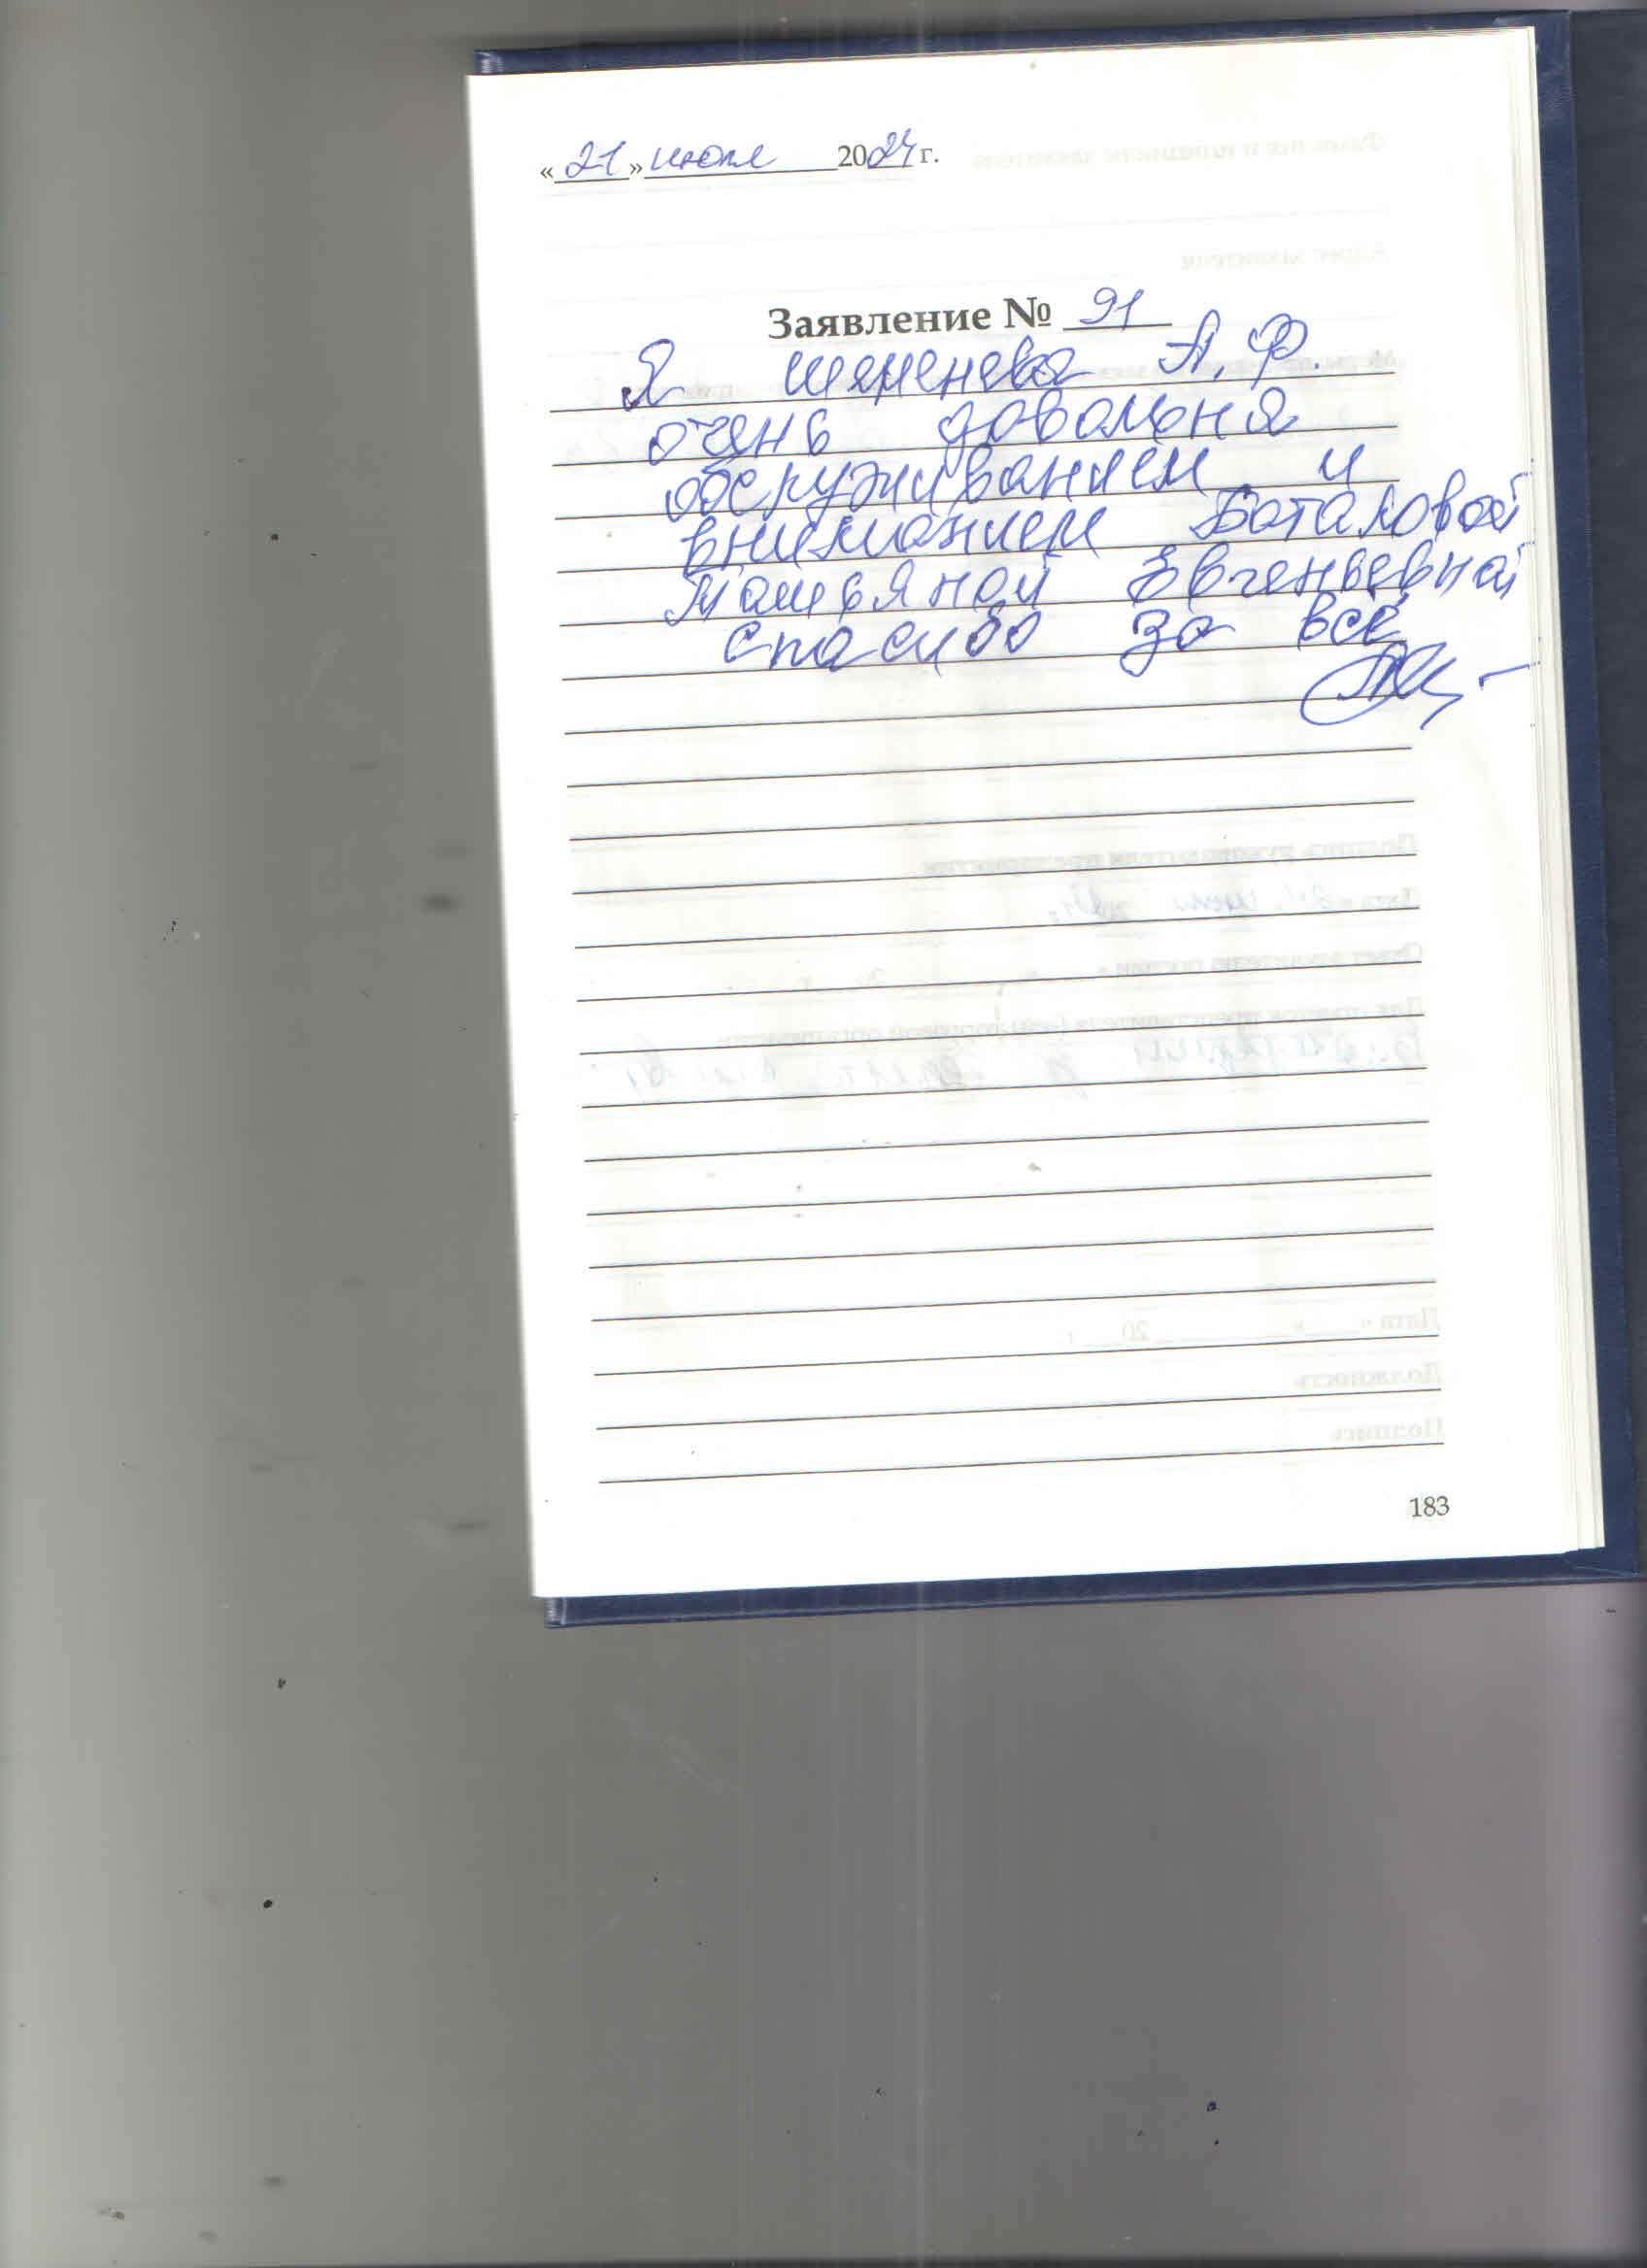 « 21 » июля 2024 г.
Заявление № 91
Я Щеменева А. Ф.
очень довольна
обслуживанием и
вниманием Баталовой
Татьяной Евгеньевной
спасибо за всё
183